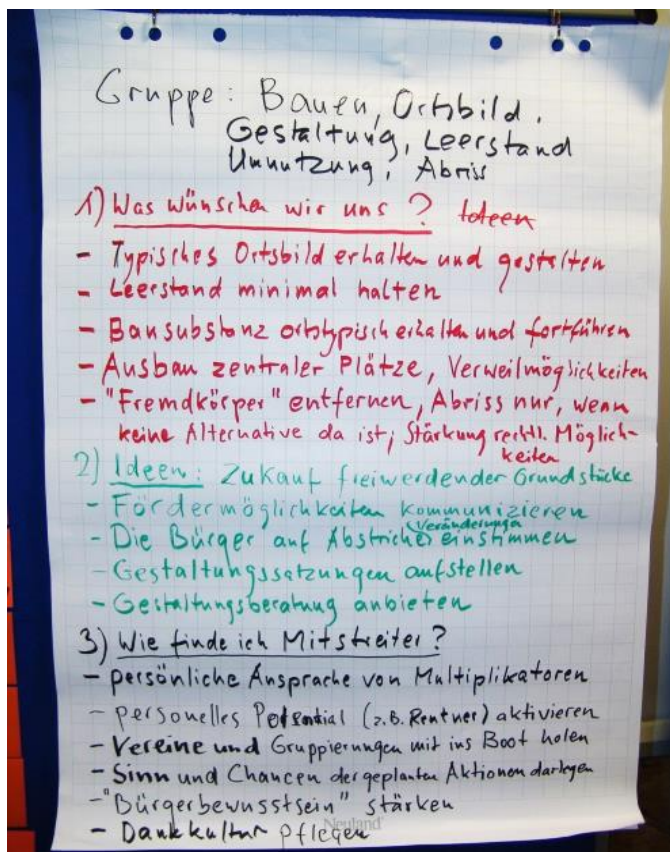 Gruppe: Bauen, Ortsbild,
Gestaltung, Leerstand
Umnutzung, Abriss
1) Was wünschen wir uns? Ideen
- Typisches Ortsbild erhalten und gestalten
- Leerstand minimal halten
- Bausubstanz ortstypisch erhalten und fortführen
- Ausbau zentraler Plätze, Verweilmöglichkeiten
- "Fremdkörper" entfernen, Abriss nur, wenn
keine Alternative da ist; Stärkung rechtl. Möglich-
keiten
2) Ideen: Zukauf freiwerdender Grundstücke
- Fördermöglichkeiten kommunizieren
- Die Bürger auf Abstriche (Veränderungen) einstimmen
- Gestaltungssatzungen aufstellen
- Gestaltungsberatung anbieten
3) Wie finde ich Mitstreiter?
- persönliche Ansprache von Multiplikatoren
- personelles Potential (z.B. Rentner) aktivieren
- Vereine und Gruppierungen mit ins Boot holen
- Sinn und Chancen der geplanten Aktionen darlegen
- "Bürgerbewusstsein" stärken
- Dankkultur pflegen
Neuland